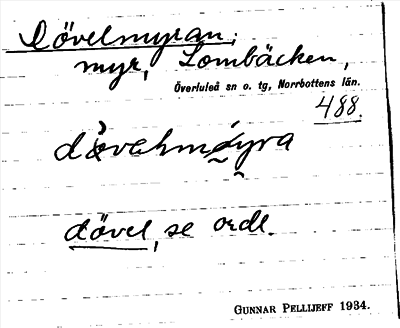 Dövelmyran;
myr, Lombäcken,
Överluleå sn o. tg, Norrbottens län.
488.
dövel, se ordl.
GUNNAR PELLIJEFF 1934.